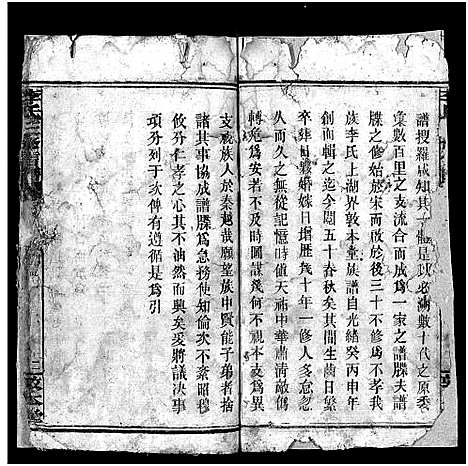 譜搜羅咸知其一體是以必溯數十代之原委
彙數百里之支流合而成爲一家之譜牒夫譜
牒之修始於宋而啟於後三十不修爲不孝我
族李氏上湖界敦本堂族譜自光緒癸丙申年
創而輯之迄今閱五十春秋矣其間生齒日繁
卒葬日夥婚嫁日增歷幾十年一修人多怠忽
久而久之無從記憶時值天祐中華肅清敵僞
轉危爲安若不及時圖謀幾何不視本支爲異
支視族人於秦越哉願望族中賢能子弟者捨
諸其事協成譜牒爲急務使知倫次不紊昭穆
攸分仁孝之心其不油然而興矣爰將議決事
項分列于次俾有遵循是爲引
李氏三修族譜
三 敦本堂